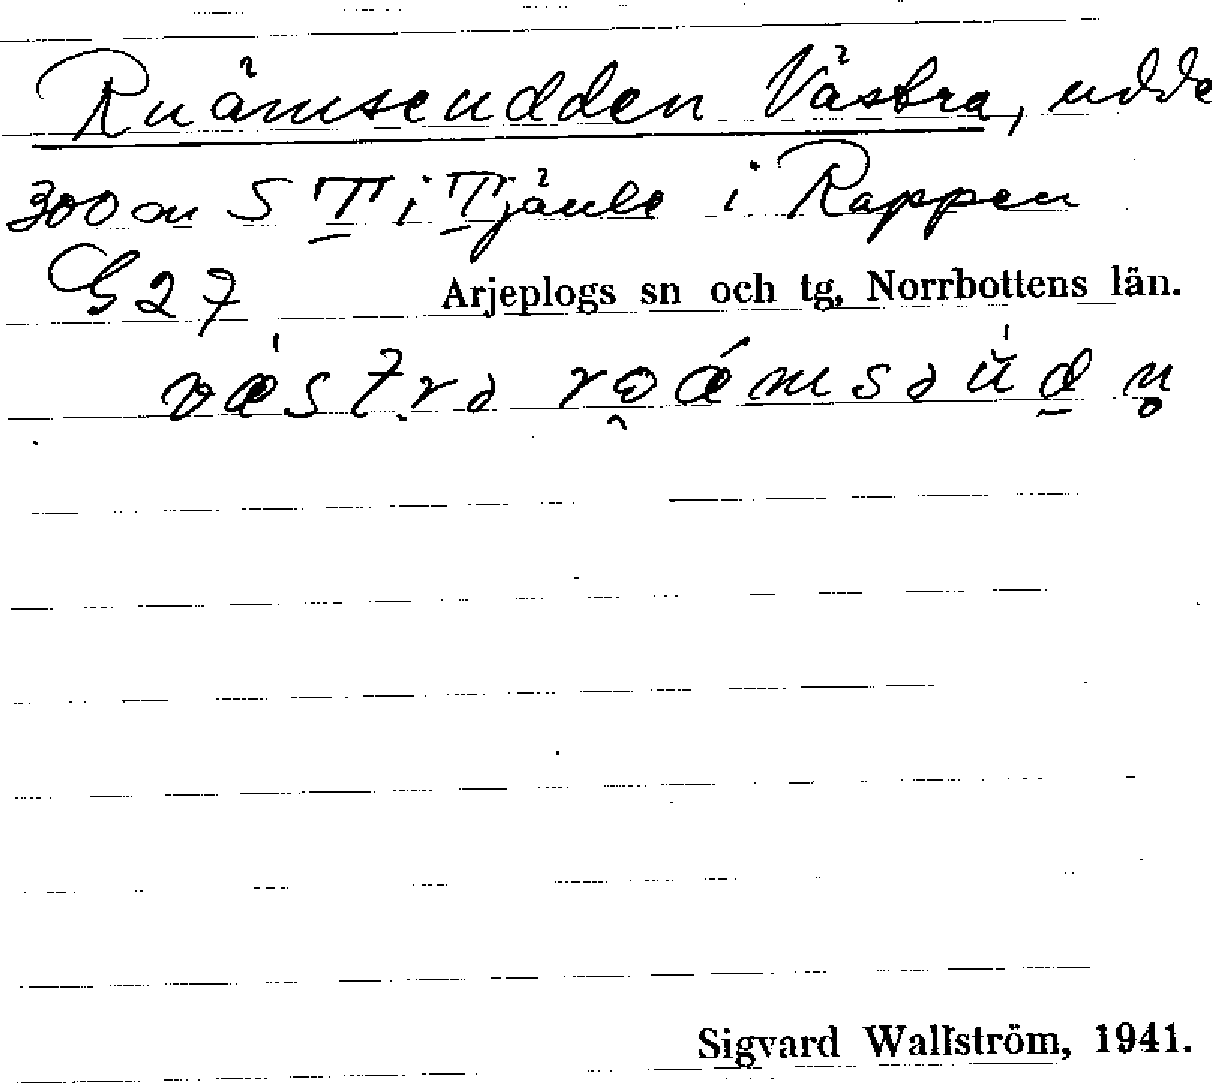 Ruämseudden Västra, udde
300 m S T i Tjåule i Rappen
G 27 Arjeplogs sn och tg, Norrbottens län.
væstra roæmsəudn
Sigvard Wallström, 1941.